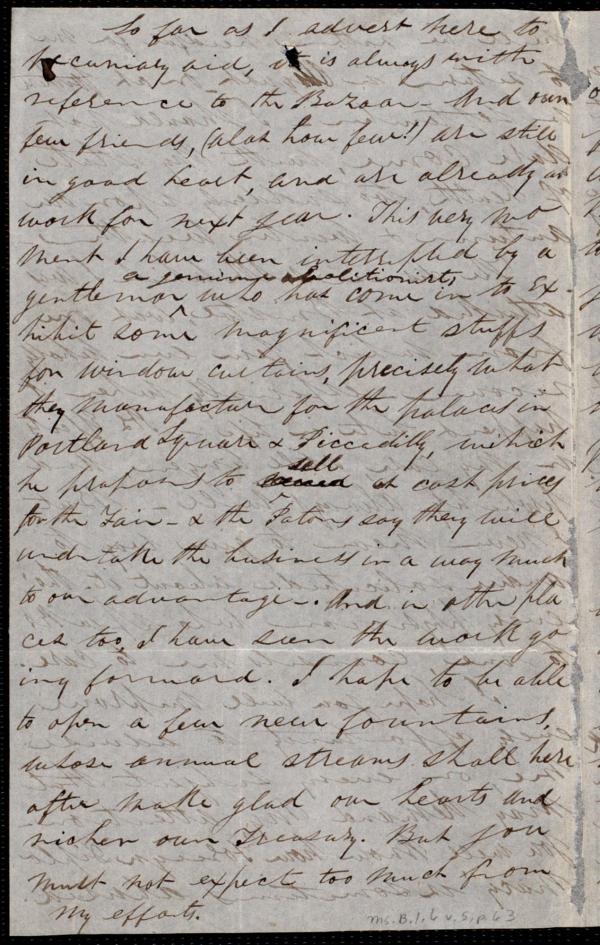 So far as I advert here to
pecuniary aid, it is always with
reference to the Bazaar - And our
few friends, (alas how few!) are still
in good heart, and are already at
work for next year. This very mo
ment I have been interrupted by a
a genuine abolitionist,
gentleman who has come in to ex-
hibit some magnificent stuffs
for window curtains, precisely what
they manufacture for the palaces in
Portland Square & Piccadilly, which
sell
he proposes to at cost prices
for the Fair - & the Patons say they will
undertake the business in a way much
to our advantage -. And in other pla
ces too, I have seen the work go
ing forward. I hope to be able
to open a few new fountains,
whose annual streams shall here
after make glad our hearts and
richer our Treasury. But you
must not expect too much from
my efforts.
Ms. B. 1. 6 v. 5, p. 63